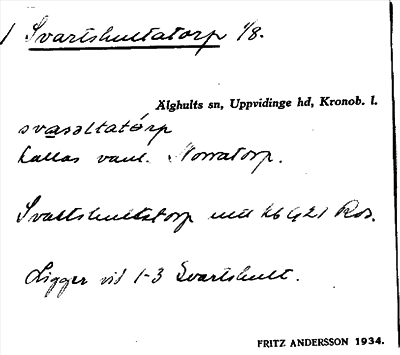 1 Svartshultatorp 1/8.
Älghults sn, Uppvidinge hd, Kronob. l.
svasaltatórp
kallas vanl. Norratorp.
Svartshultatorp utt hfl 421 Ros.
Ligger vid 1-3 Svartshult.
FRITZ ANDERSSON 1934.